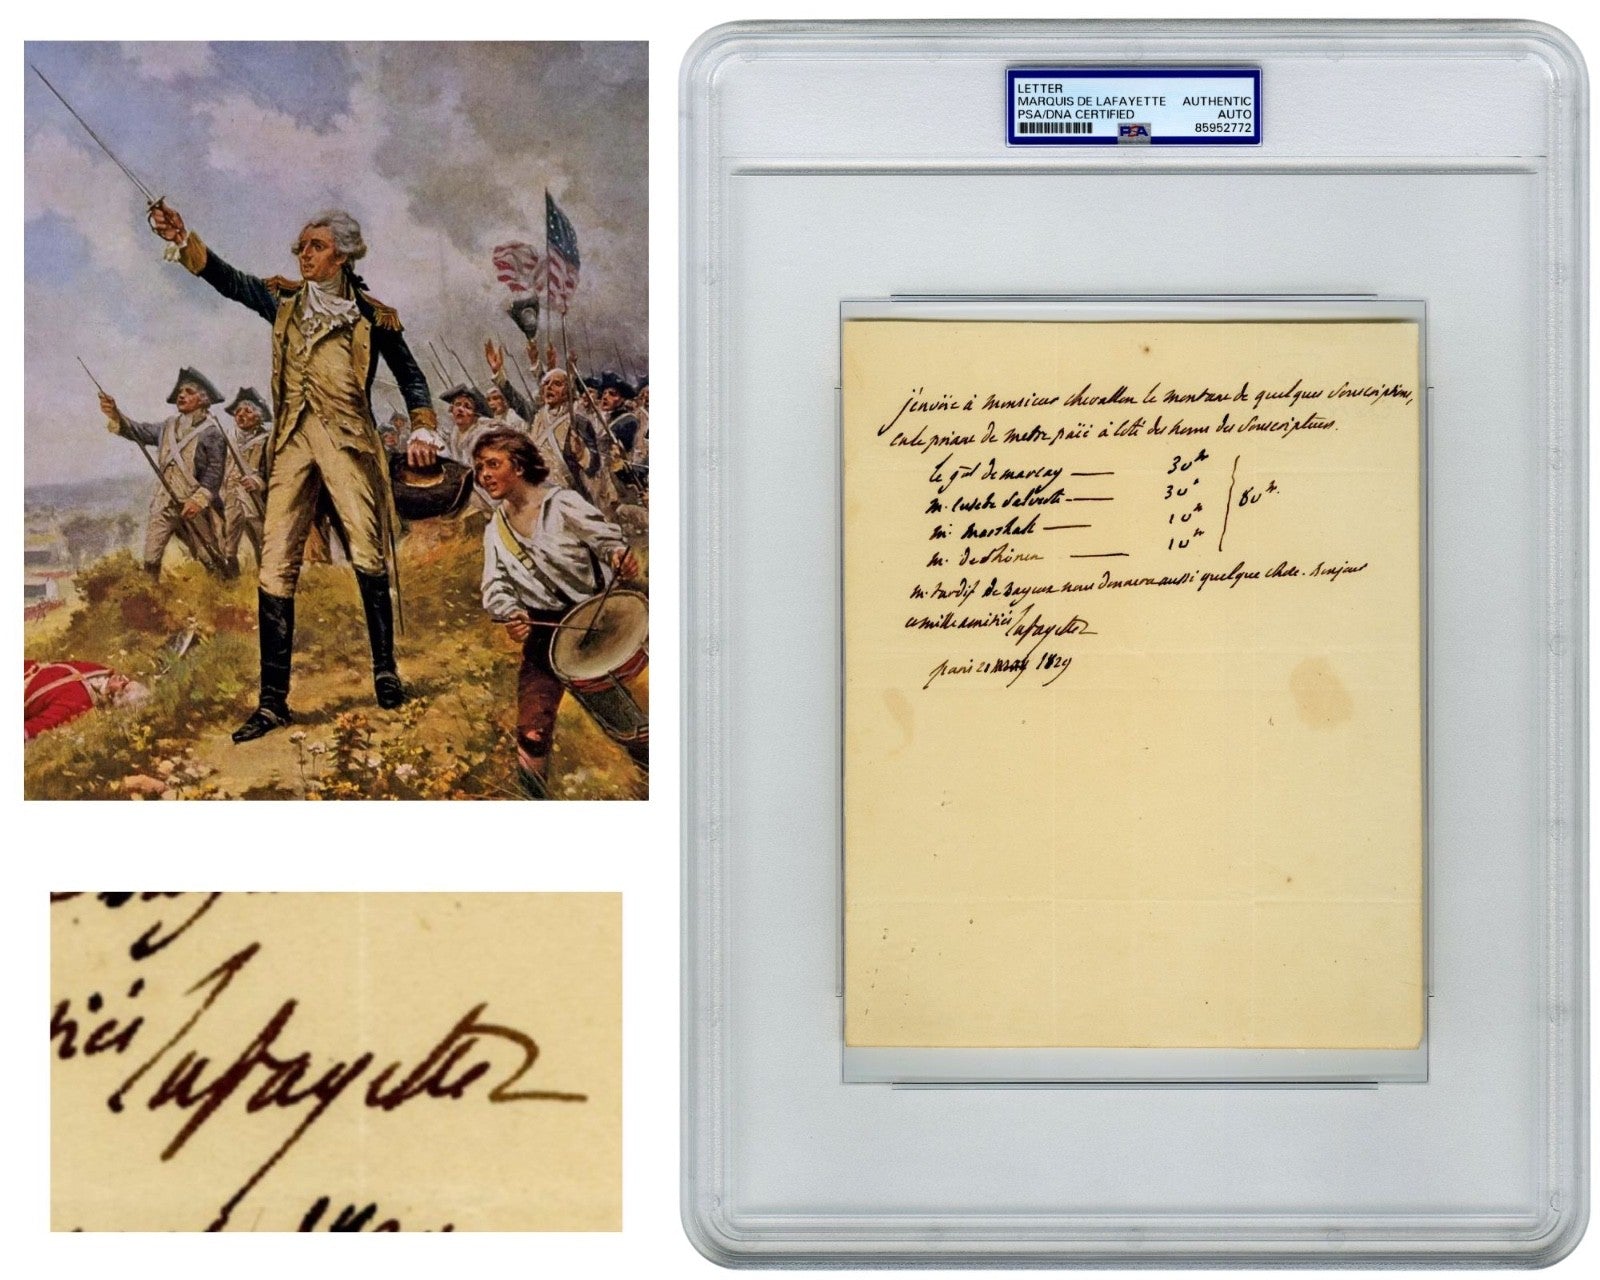 LETTER
MARQUIS DE LAFAYETTE AUTHENTIC
PSA/DNA CERTIFIED AUTO
PSA 85952772
j'envoie à Monsieur Chevallon le montant de quelques Souscriptions,
en le priant de mettre payé à côté des noms des Souscripteurs.
le gal de marcay — 30 fr
m. — 30 fr
m. Marshall — 10 fr
m. de — 10 fr
80 fr.
m. tardif de Bayeux nous donnera aussi quelque chose. Bonjour
et mille amitiés Lafayette
paris 20 may 1829
Lafayette